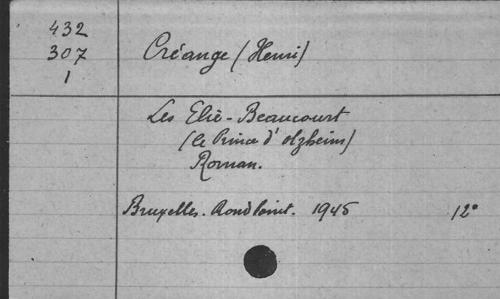 432
307
1
Créange (Henri)
Les Elie-Beaucourt
(le Prince d'olzheim)
Roman.
Bruxelles. Rond Point. 1945 12°